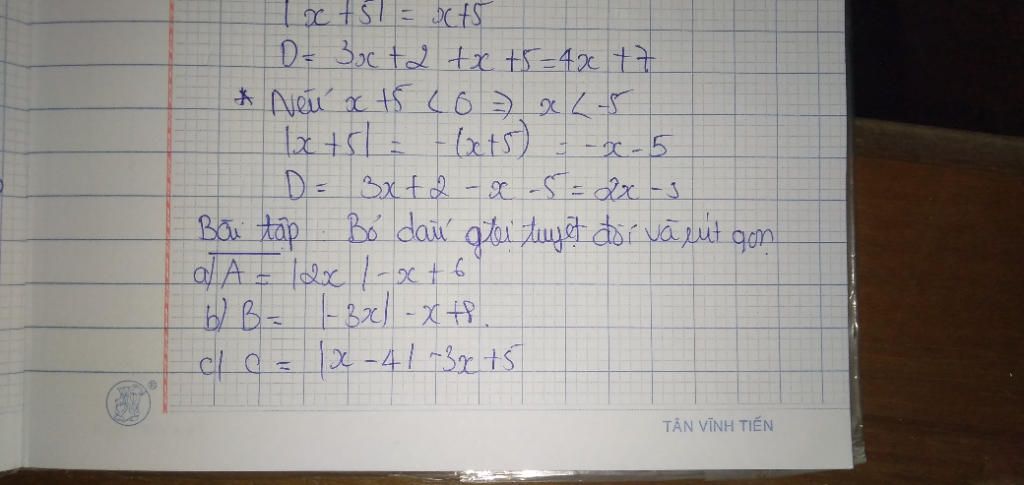 |x+5| = x+5
D= 3x+2 +x+5=4x+7
* Nếu x+5 < 0 => x < -5
|x+5| = -(x+5) = -x-5
D= 3x+2 -x -5= 2x -3
Bài tập. Bỏ dấu gtrị tuyệt đối và rút gọn
a) A = |2x| -x + 6
b) B = |-3x| -x +8.
c) C = |x-4| -3x +5
®
TÂN VĨNH TIẾN